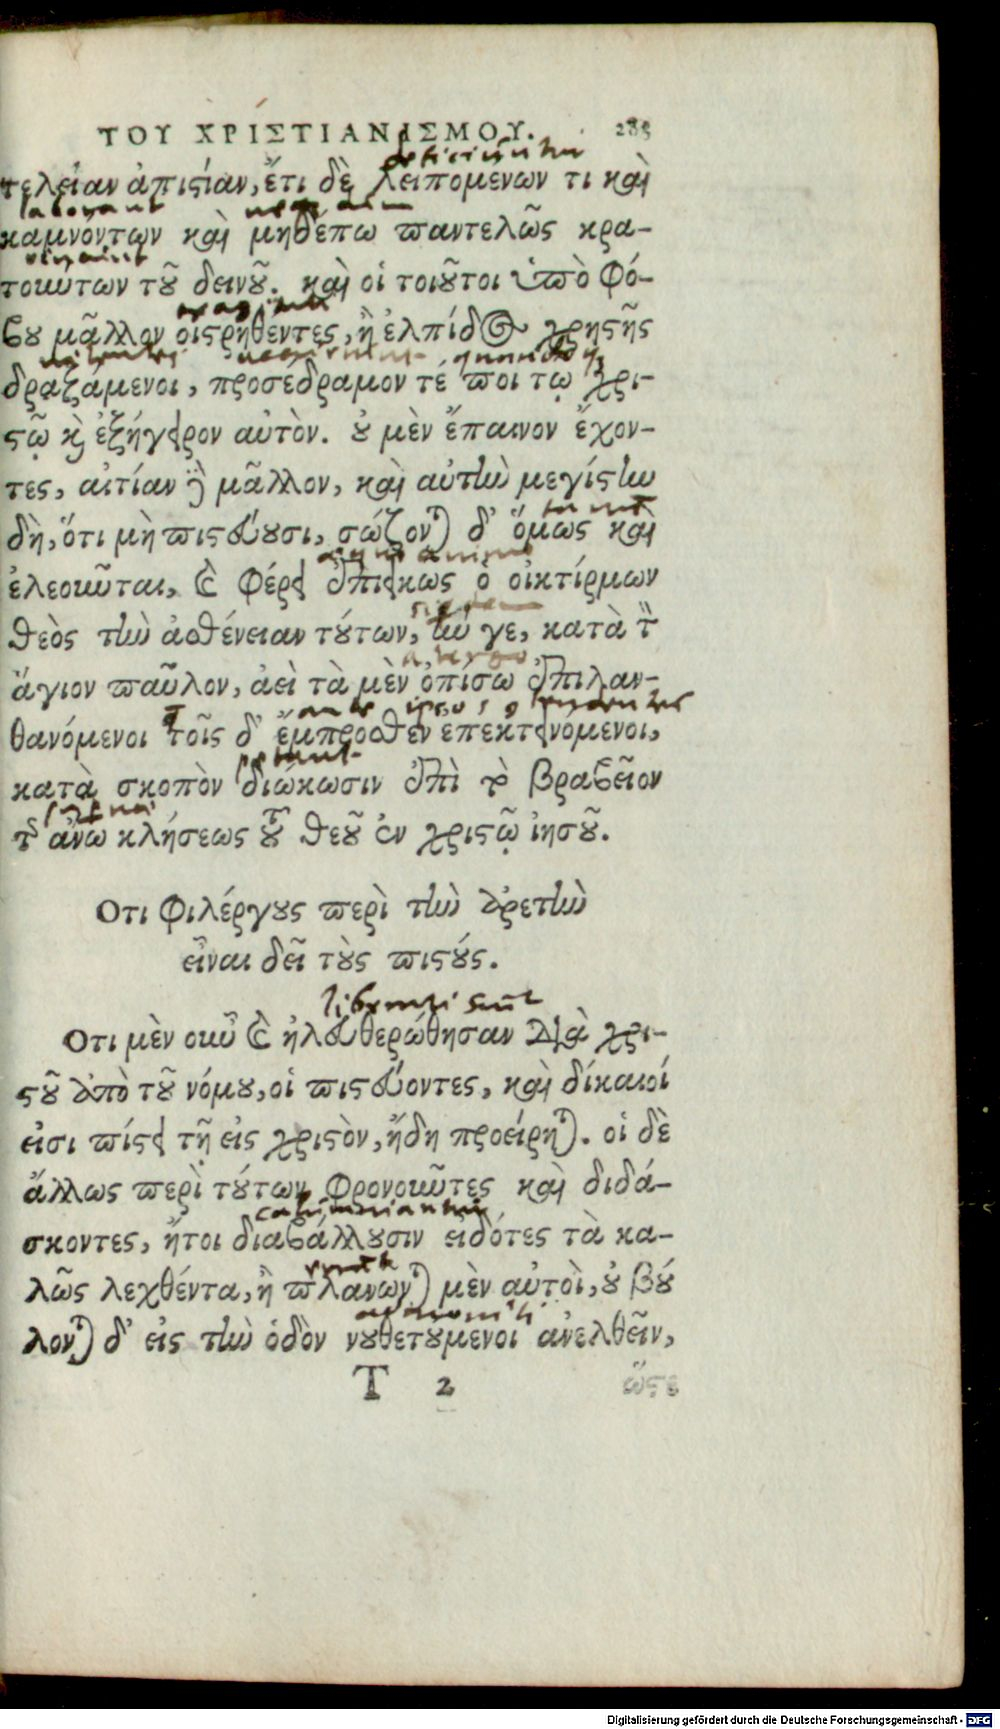 ΤΟΥ ΧΡΙΣΤΙΑΝΙΣΜΟΥ. 285
deficiuntur
τελείαν ἀπιστίαν, ἔτι δὲ λειπομένων τι καὶ
laborant
καμνόντων καὶ μηδέπω παντελῶς κρα-
τούντων τοῦ δεινοῦ. καὶ οἱ τοιοῦτοι ὑπὸ φό-
βου μᾶλλον οἰστρηθέντες, ἢ ἐλπίδος χρηστῆς
δραξάμενοι, προσέδραμον τέ ποι τῷ χρι-
στῷ καὶ ἐξήγειρον αὐτὸν. οὐ μὲν ἔπαινον ἔχον-
τες, αἰτίαν δὲ μᾶλλον, καὶ αὐτὴν μεγίστην
δὴ, ὅτι μὴ πιστεύουσι, σώζονται δ' ὅμως καὶ
ἐλεοῦνται, καὶ φέρει ἐπιεικῶς ὁ οἰκτίρμων
θεὸς τὴν ἀσθένειαν τούτων, ἤν γε, κατὰ τὸν
ἅγιον παῦλον, ἀεὶ τὰ μὲν ὀπίσω ἐπιλαν-
ante ipsos
θανόμενοι τοῖς δ' ἔμπροσθεν ἐπεκτεινόμενοι,
κατὰ σκοπὸν διώκωσιν ἐπὶ τὸ βραβεῖον
superna
τῆς ἄνω κλήσεως τοῦ θεοῦ ἐν χριστῷ ἰησοῦ.
Οτι φιλέργους περὶ τὴν ἀρετὴν
εἶναι δεῖ τοὺς πιστούς.
liberati sunt
Οτι μὲν οὖν καὶ ἠλευθερώθησαν διὰ χρι-
στοῦ ἀπὸ τοῦ νόμου, οἱ πιστεύοντες, καὶ δίκαιοί
εἰσι πίστει τῇ εἰς χριστὸν, ἤδη προείρηται. οἱ δὲ
ἄλλως περὶ τούτων φρονοῦντες καὶ διδά-
calumniantur
σκοντες, ἤτοι διαβάλλουσιν εἰδότες τὰ κα-
λῶς λεχθέντα, ἢ πλανῶνται μὲν αὐτοὶ, οὐ βού
admoniti
λονται δ' εἰς τὴν ὁδὸν νουθετούμενοι ἀνελθεῖν,
T 2 ὥστε
Digitalisierung gefördert durch die Deutsche Forschungsgemeinschaft - DFG